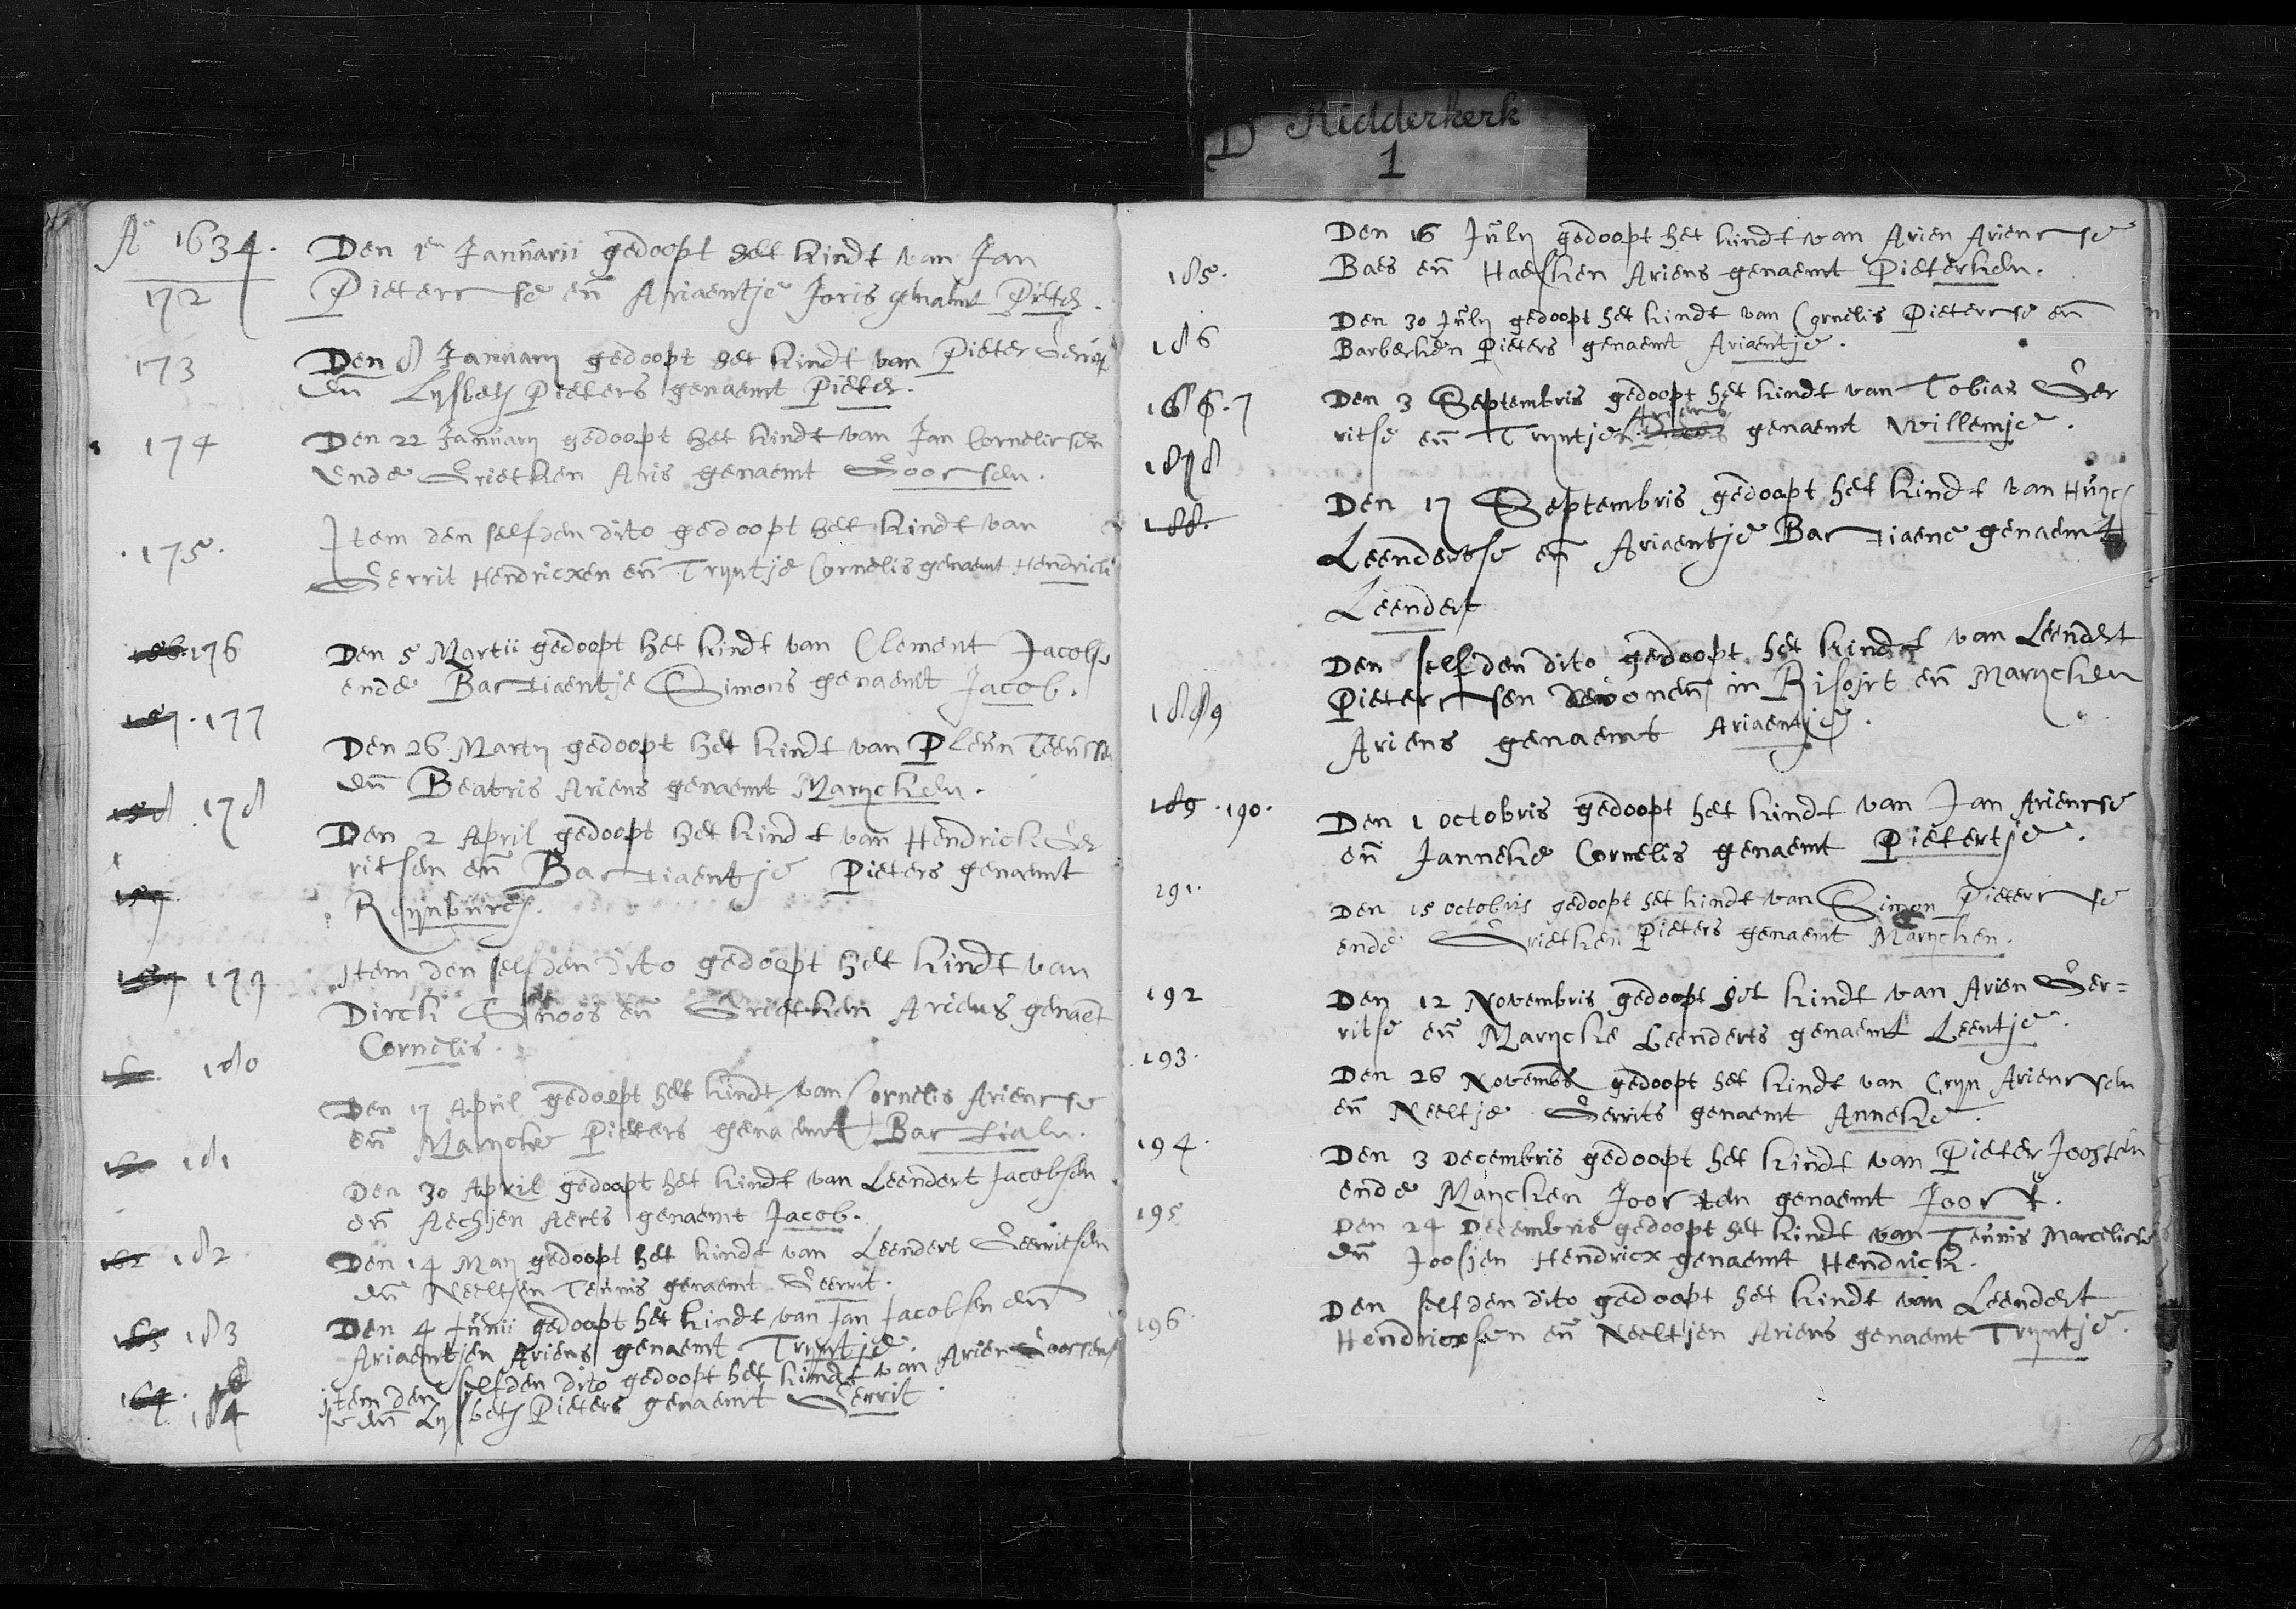 D Ridderkerk
1
Ao 1634.
172
Den 1en Januarii gedoopt het kindt van Jan
Pieterse en Ariaentje Joris genaemt Pieter.
173
Den 8 Januarij gedoopt het kindt van Pieter
en Lysbeth Pieters genaemt Pieter.
174
Den 22 Januarij gedoopt het kindt van Jan Cornelissen
ende Grietken Aris genaemt Goossen.
175.
Item den selfden dito gedoopt het kindt van
Gerrit Hendricxen en Tryntje Cornelis genaemt Hendrick
176
Den 5 Martii gedoopt het kindt van Clement Jacobse
ende Bastiaentje Simons genaemt Jacob.
177
Den 26 Martij gedoopt het kindt van Pleun
en Beatris Ariens genaemt Marijcken.
178
Den 2 April gedoopt het kindt van Hendrick Ger
ritsen en Bastiaentje Pieters genaemt
Reynburch.
179
Item den selfden dito gedoopt het kindt van
Dirck Snoos en Grietken Ariens genaemt
Cornelis.
180
Den 17 April gedoopt het kindt van Cornelis Arienss
en Marycke Pieters genaemt Bastiaen.
181
Den 30 April gedoopt het kindt van Leendert Jacobsen
en Aechjen Aerts genaemt Jacob.
182
Den 14 Maij gedoopt het kindt van Leendert Geeritsen
en Neeltjen Teunis genaemt Geerrit.
183
Den 4 Junii gedoopt het kindt van Jan Jacobsen en
Ariaentjen Ariens genaemt Tryntje.
184
item den selfden dito gedoopt het kindt van Arien Goossens
se en Lysbeth Pieters genaemt Gerrit.
Den 16 July gedoopt het kindt van Arien Arienss
185.
Baes en Haesken Ariens genaemt Pieterken.
186
Den 30 July gedoopt het kindt van Cornelis Pieterse en
Barberken Pieters genaemt Ariaentje.
7
Den 3 Septembris gedoopt het kindt van Tobias Ger
ritse en Tryntje Ariens genaemt Willemje.
188
Den 17 Septembris gedoopt het kindt van Huych
188.
Leendertse en Ariaentje Bastiaens genaemt
Leendert
Den selfden dito gedoopt het kindt van Leendert
189
Pieterssen wonen in Rijsoirt en Marijcken
Ariens genaemt Ariaentje.
189. 190.
Den 1 octobris gedoopt het kindt van Jan Arienss
en Janneke Cornelis genaemt Pietertje.
191.
Den 15 octobris gedoopt het kindt van Simon Pieterse
ende Grietken Pieters genaemt Marycken.
192
Den 12 Novembris gedoopt het kindt van Arien Ger=
ritse en Marycke Leenderts genaemt Leentje.
193.
Den 26 Novemb gedoopt het kindt van Cryn Arienssen
en Neeltje Gerrits genaemt Anneke.
194.
Den 3 Decembris gedoopt het kindt van Pieter Joosten
ende Marycken Joosten genaemt Joost.
195
Den 24 Decembris gedoopt het kindt van Teunis Marcelisse
en Joosjen Hendricx genaemt Hendrick.
196
Den selfden dito gedoopt het kindt van Leendert
Hendricxsen en Neeltjen Ariens genaemt Tryntje.